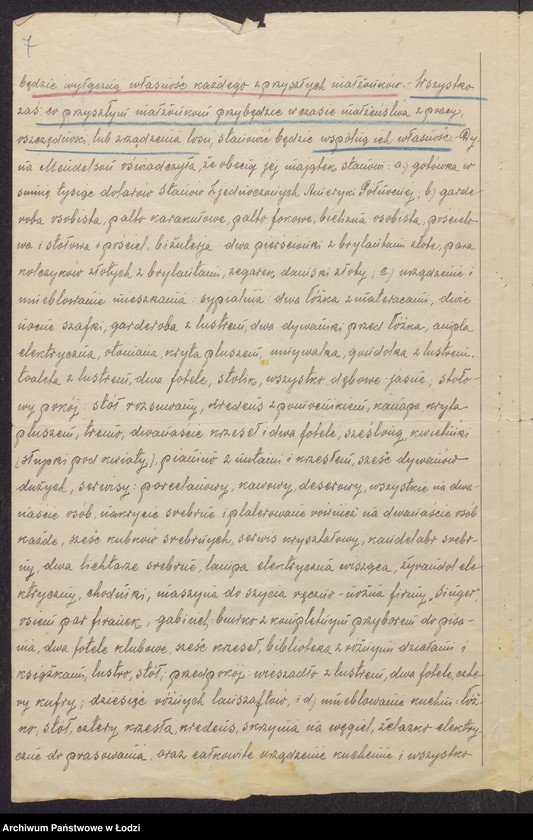 7
będzie wyłączną własność każdego z przyszłych małżonków. Wszystko
zaś co przyszłym małżonkom przybędzie w czasie małżeństwa z pracy,
oszczędności, lub zrządzenia losu, stanowić będzie wspólną ich własność. Dy-
na Mendelson oświadczyła, że obecnie jej majątek stanowi: a) gotówka w
sumie tysiąc dolarów Stanów Zjednoczonych Ameryki Północnej, b) garde-
roba osobista, palto karakułowe, palto fokowe, bielizna osobista, pościelo-
wa i stołowa i pościel, biżuterja: dwa pierścionki z brylantami złote, para
kolczyków złotych z brylantami, zegarek damski złoty; c) urządzenie i
umeblowanie mieszkania: sypialnia: dwa łóżka z materacami, dwie
nocne szafki, garderoba z lustrem, dwa dywaniki przed łóżka, ampla
elektryczna, otomana kryta pluszem, umywalka, gondolka z lustrem,
toaleta z lustrem, dwa fotele, stolik, wszystko dębowe jasne, stoło-
wy pokój: stół rozsuwany, kredens z pomocnikiem, kanapa kryta
pluszem, tremo, dwanaście krzeseł i dwa fotele, szezlong, kwietniki
(słupki pod kwiaty), pianino z nutami i krzesłem, sześć dywanów
dużych, serwisy: porcelanowy, kawowy, deserowy, wszystkie na dwa-
naście osób, nakrycie srebrne i platerowane również na dwanaście osób
każde, sześć kubków srebrnych, serwis kryształowy, kandelabr srebr-
ny, dwa lichtarze srebrne, lampa elektryczna wisząca, żyrandol ele-
ktryczny, chodniki, maszyna do szycia ręczno-nożna firmy "Singer",
osiem par firanek, gabinet: biurko z kompletnym przyborem do pisa-
nia, dwa fotele klubowe, sześć krzeseł, biblioteka z różnymi działami i
książkami, lustro, stół; przedpokój: wieszadło z lustrem, dwa fotele, czte-
ry kufry; dziesięć różnych lanszaftów, i d) umeblowanie kuchni: łóż-
ko, stół, cztery krzesła, kredens, skrzynia na węgiel, żelazko elektry-
czne do prasowania, oraz całkowite urządzenie kuchenne i wszystko
Archiwum Państwowe w Łodzi